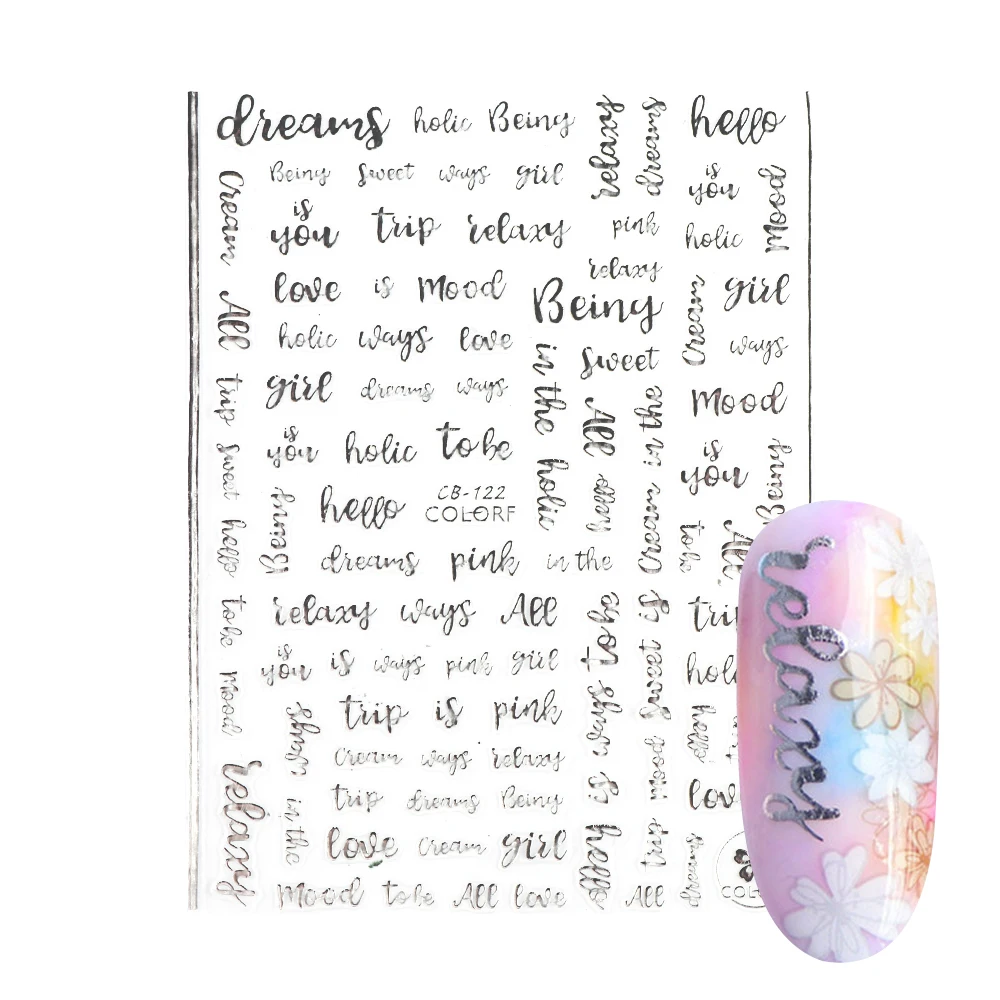 dreams holic Being
relaxy
dreams
hello
Being Sweet ways girl
is
you
Mood
Cream
is
you trip relaxy pink
holic
relaxy
love is Mood
Being
Cream
girl
All
holic ways love
in the
Sweet
ways
trip
girl dreams ways
All
in the
Mood
Sweet
is
you holic to be
holic
hello
Cream
is
you
Being
hello
Being
hello
CB-122
COLORF
to be
All
dreams pink in the
to be
relaxy ways All
to be
is
tri
Mood
is
you is ways pink girl
ways
Sweet
hol
ways
trip is pink
is
Mood
hello
relaxy
Cream ways relaxy
in the
trip dreams Being
hello
trip
lov
love Cream girl
dreams
Mood to be All love
All
COL
relaxy